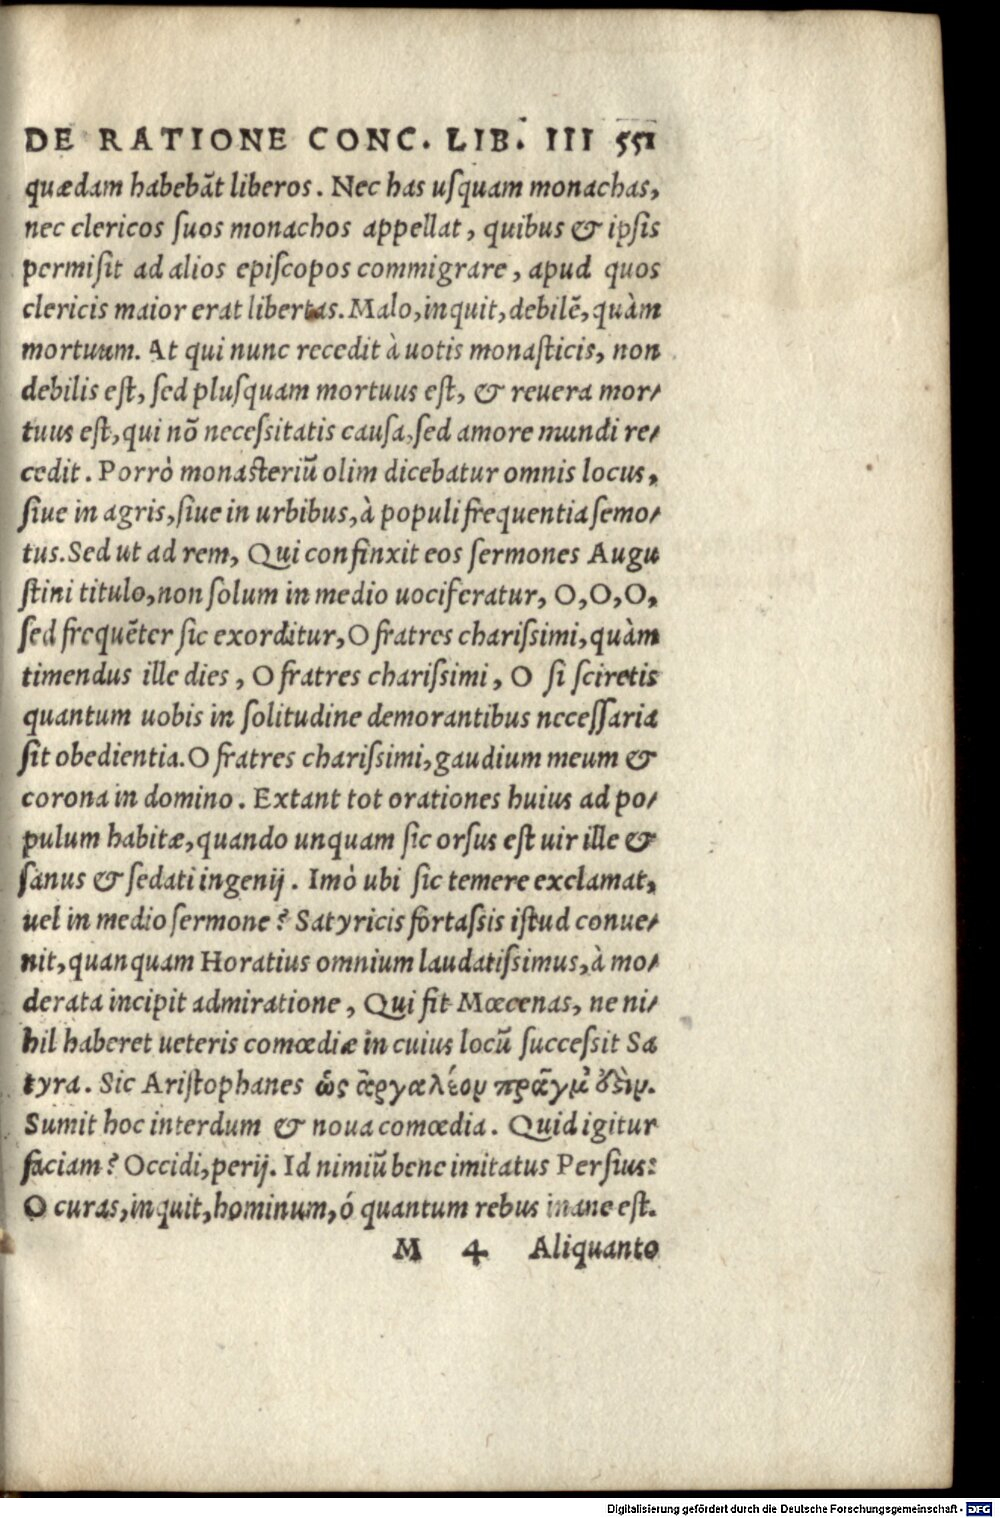 DE RATIONE CONC. LIB. III 551
quædam habebãt liberos. Nec has uſquam monachas,
nec clericos ſuos monachos appellat, quibus & ipſis
permiſit ad alios epiſcopos commigrare, apud quos
clericis maior erat libertas. Malo, inquit, debilẽ, quàm
mortuum. At qui nunc recedit à uotis monaſticis, non
debilis eſt, ſed pluſquam mortuus eſt, & reuera mor/
tuus eſt, qui nõ neceſsitatis cauſa, ſed amore mundi re/
cedit. Porrò monaſteriũ olim dicebatur omnis locus,
ſiue in agris, ſiue in urbibus, à populi frequentia ſemo/
tus. Sed ut ad rem, Qui confinxit eos ſermones Augu
ſtini titulo, non ſolum in medio uociferatur, O, O, O,
ſed frequẽter ſic exorditur, O fratres chariſsimi, quàm
timendus ille dies, O fratres chariſsimi, O ſi ſciretis
quantum uobis in ſolitudine demorantibus neceſſaria
ſit obedientia. O fratres chariſsimi, gaudium meum &
corona in domino. Extant tot orationes huius ad po/
pulum habitæ, quando unquam ſic orſus eſt uir ille &
ſanus & ſedati ingenij. Imò ubi ſic temere exclamat,
uel in medio ſermone? Satyricis fortaſsis iſtud conue/
nit, quanquam Horatius omnium laudatiſsimus, à mo/
derata incipit admiratione, Qui fit Mœcenas, ne ni/
hil haberet ueteris comœdiæ in cuius locũ ſucceſsit Sa
tyra. Sic Ariſtophanes ὡς ἀργαλέον πρᾶγμ' ἐδὲιν.
Sumit hoc interdum & noua comœdia. Quid igitur
faciam? Occidi, perij. Id nimiũ bene imitatus Perſius:
O curas, inquit, hominum, ó quantum rebus inane eſt.
M 4 Aliquanto
Digitalisierung gefördert durch die Deutsche Forschungsgemeinschaft - DFG